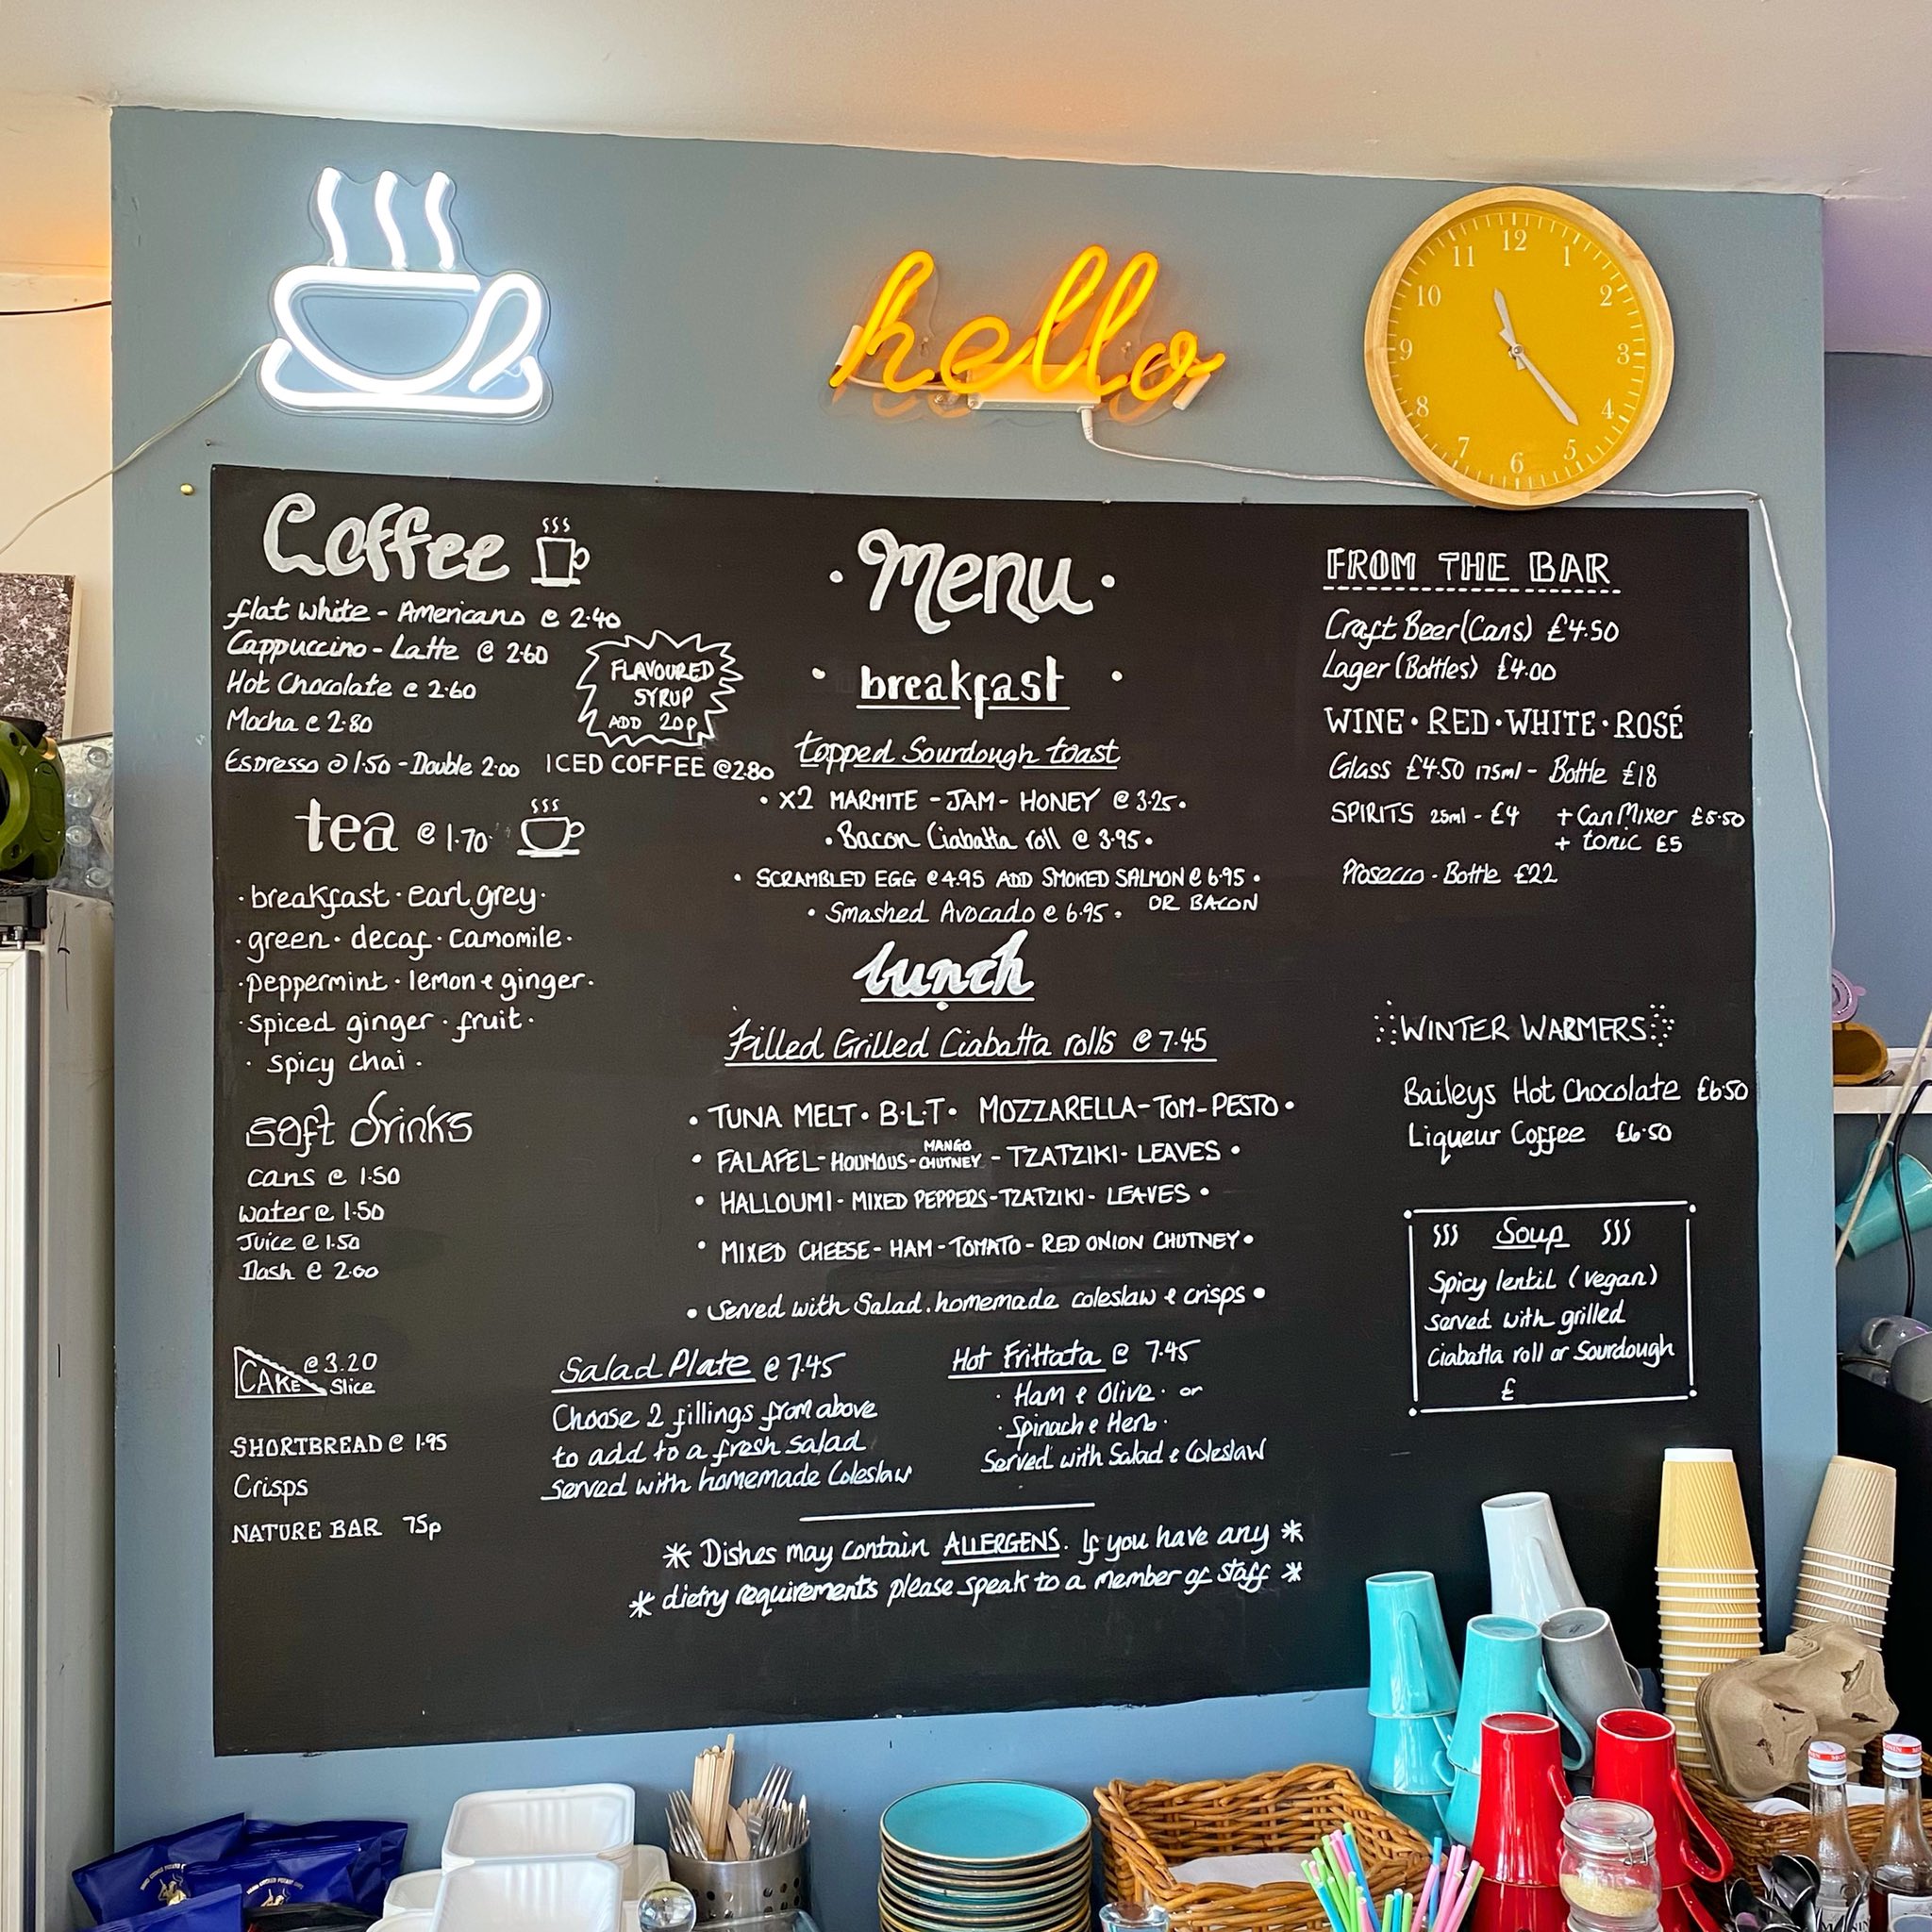 hello
12
1
2
3
4
5
6
7
8
9
10
11
Coffee
flat white - Americano @ 2.40
Cappuccino - Latte @ 2.60
Hot Chocolate @ 2.60
Mocha @ 2.80
Espresso @ 1.50 - Double 2.00
FLAVOURED
SYRUP
ADD 20p
ICED COFFEE @ 2.80
tea @ 1.70
· breakfast · earl grey ·
· green · decaf · camomile ·
· peppermint · lemon & ginger ·
· spiced ginger · fruit ·
· spicy chai ·
soft drinks
cans @ 1.50
water @ 1.50
Juice @ 1.50
Dash @ 2.00
CAKE @ 3.20
Slice
SHORTBREAD @ 1.95
Crisps
NATURE BAR 75p
· Menu ·
· breakfast ·
topped Sourdough toast
· X2 MARMITE - JAM - HONEY @ 3.25 ·
· Bacon Ciabatta roll @ 3.95 ·
· SCRAMBLED EGG @ 4.95 ADD SMOKED SALMON @ 6.95 ·
OR BACON
· Smashed Avocado @ 6.95 ·
lunch
Filled Grilled Ciabatta rolls @ 7.45
· TUNA MELT · B·L·T · MOZZARELLA - TOM - PESTO ·
· FALAFEL - HOUMOUS - MANGO CHUTNEY - TZATZIKI - LEAVES ·
· HALLOUMI - MIXED PEPPERS - TZATZIKI - LEAVES ·
· MIXED CHEESE - HAM - TOMATO - RED ONION CHUTNEY ·
· Served with Salad. homemade coleslaw & crisps ·
Salad Plate @ 7.45
Choose 2 fillings from above
to add to a fresh salad
Served with homemade Coleslaw
Hot Frittata @ 7.45
· Ham & Olive · or
· Spinach & Herb ·
Served with Salad & Coleslaw
* Dishes may contain ALLERGENS. If you have any *
* dietry requirements please speak to a member of staff *
FROM THE BAR
Craft Beer (Cans) £4.50
Lager (Bottles) £4.00
WINE · RED · WHITE · ROSÉ
Glass £4.50 175ml - Bottle £18
SPIRITS 25ml - £4 + Can Mixer £5.50
+ tonic £5
Prosecco - Bottle £22
WINTER WARMERS
Baileys Hot Chocolate £6.50
Liqueur Coffee £6.50
Soup
Spicy lentil (vegan)
served with grilled
Ciabatta roll or Sourdough
£